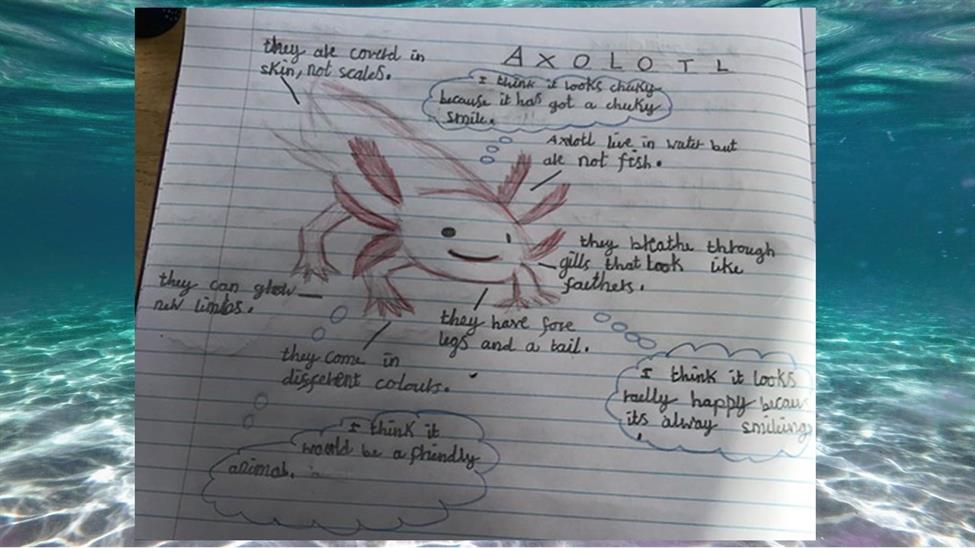 AXOLOTL
they are coverd in
skin, not scales.
I think it looks cheky
because it has got a cheky
smile.
Axlotl live in water but
are not fish.
they breathe through
gills that look like
faethers.
they can grow
new limbs.
they have fore
legs and a tail.
they come in
different colours.
I think it looks
raelly happy becaus
its alway smileing
I think it
would be a friendly
animal.